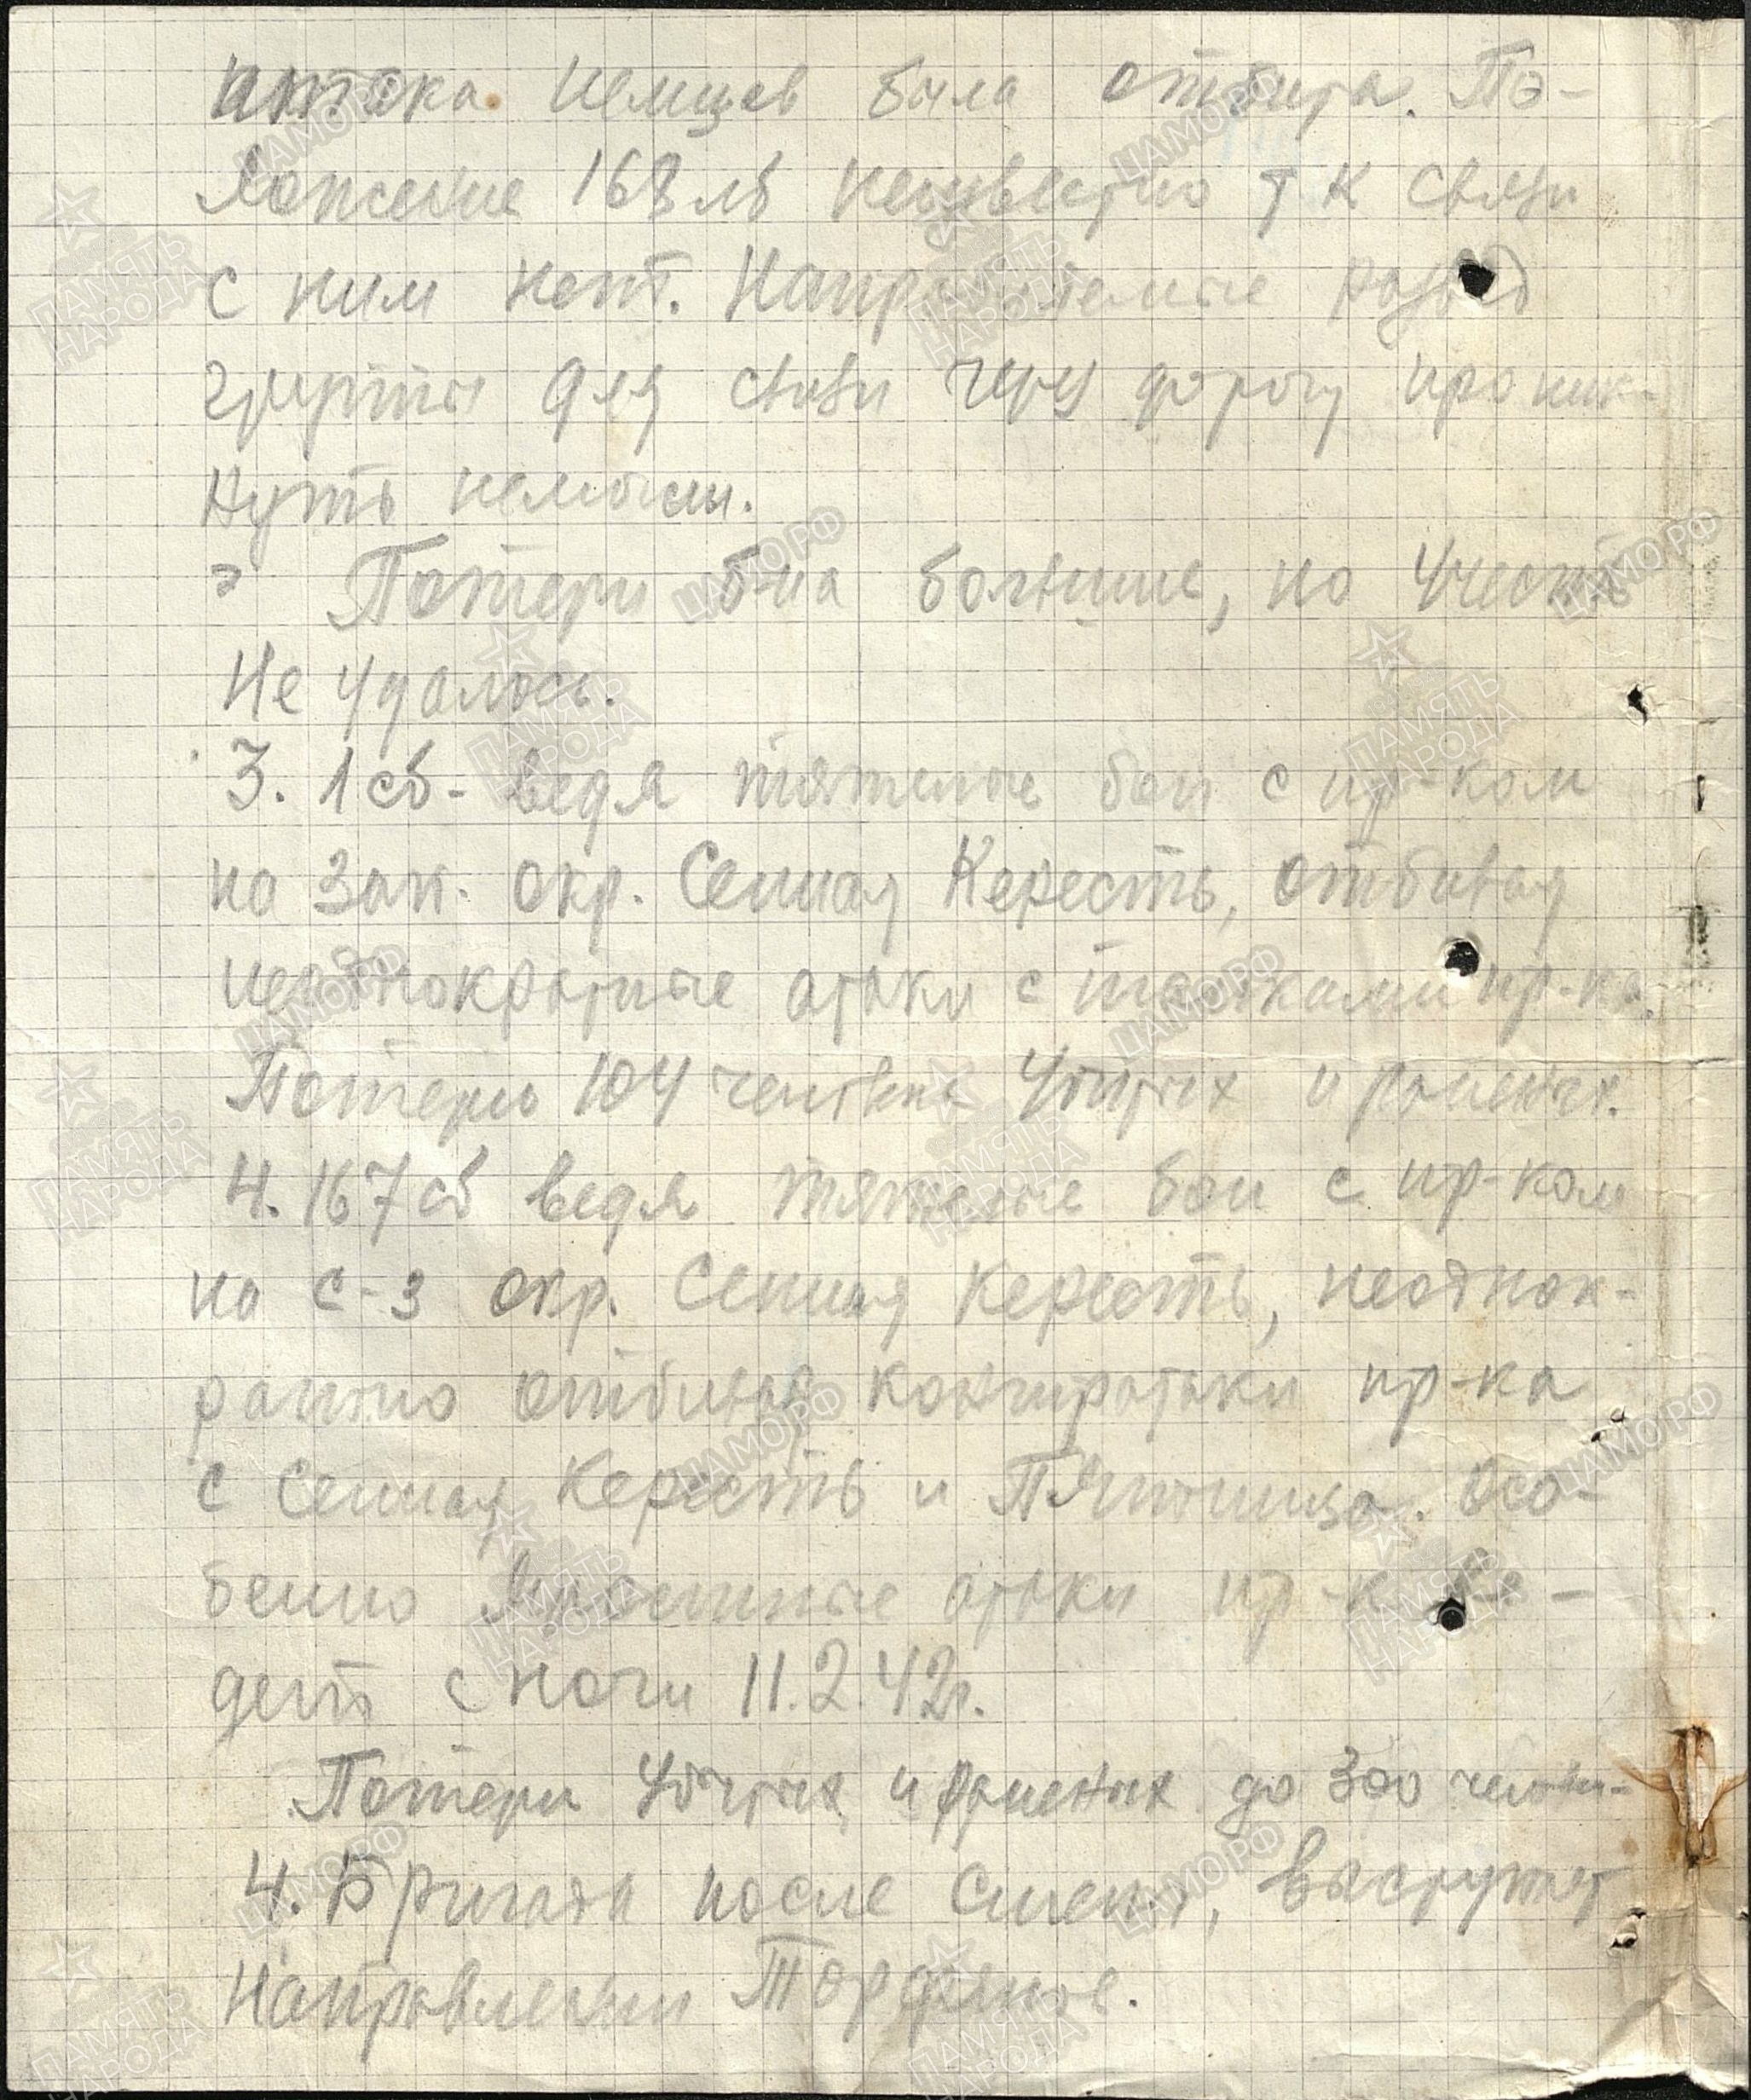 атака немцев была отбита. По-
ложение 168 лб неизвестно т к связи
с ним нет. Направляемые развед
группы для связи через дорогу проник-
нуть не могли.
Потери б-на большие, но учесть
Не удалось.
3. 1 сб - ведя тяжелые бои с пр-ком
на зап. окр. Сенная Кересть, отбивая
неоднократные атаки с танками пр-ка.
Потери 104 человека убитых и раненых.
4. 167 сб ведя тяжелые бои с пр-ком
на с-з окр. Сенная Кересть, неоднок-
ратно отбивая контратаки пр-ка
с Сенная Кересть и Пятница. Осо-
бенно яростные атаки пр-к ве-
дет с ночи 11.2.42г.
Потери убитых и раненых до 300 челов.-
4. Бригада после смены, выступает
Направлении Торфяное.
ПАМЯТЬ НАРОДА
ЦАМО.РФ